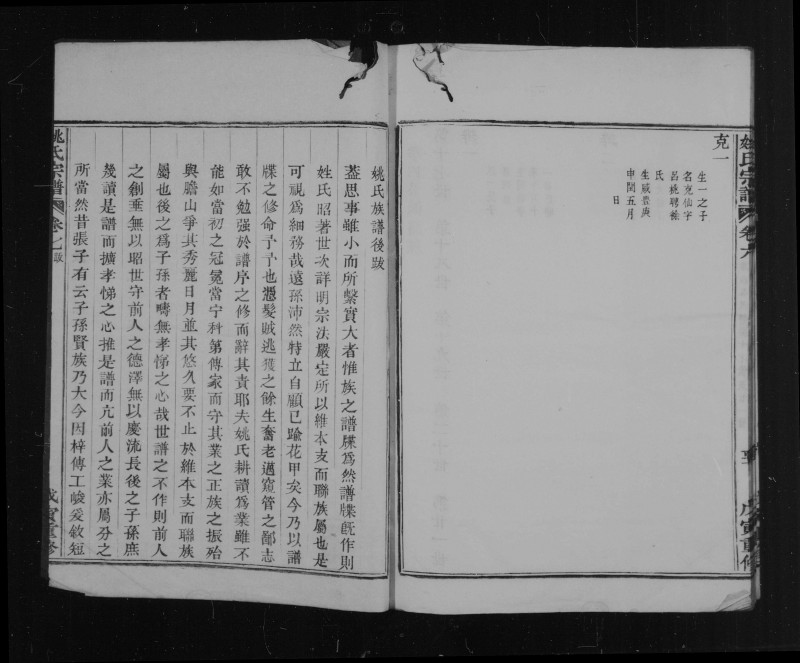 姚氏宗譜
卷六
戊寅重修
克一
生一之子
名克仙字
呂桃聘孫
氏
生咸豐庚
申閏五月
日
姚氏族譜後跋
蓋思事雖小而所繫實大者惟族之譜牒為然譜牒既作則
姓氏昭著世次詳明宗法嚴定所以維本支而聯族屬也是
可視為細務哉遠孫沛然特立自顧已踰花甲矣今乃以譜
牒之修命予予也憑髮賊逃獲之餘生奮老邁窺管之鄙志
敢不勉强於譜序之修而辭其責耶夫姚氏耕讀為業雖不
能如當初之冠冕當宁科第傳家而守其業之正族之振殆
與膽山爭其秀麗日月並其悠久要不止於維本支而聯族
屬也後之為子孫者疇無孝悌之心哉世譜之不作則前人
之創垂無以昭世守前人之德澤無以慶流長後之子孫庶
幾讀是譜而擴孝悌之心推是譜而亢前人之業亦屬分之
所當然昔張子有云子孫賢族乃大今因梓傳工峻爰敘短
姚氏宗譜
卷七
跋
戊寅重修